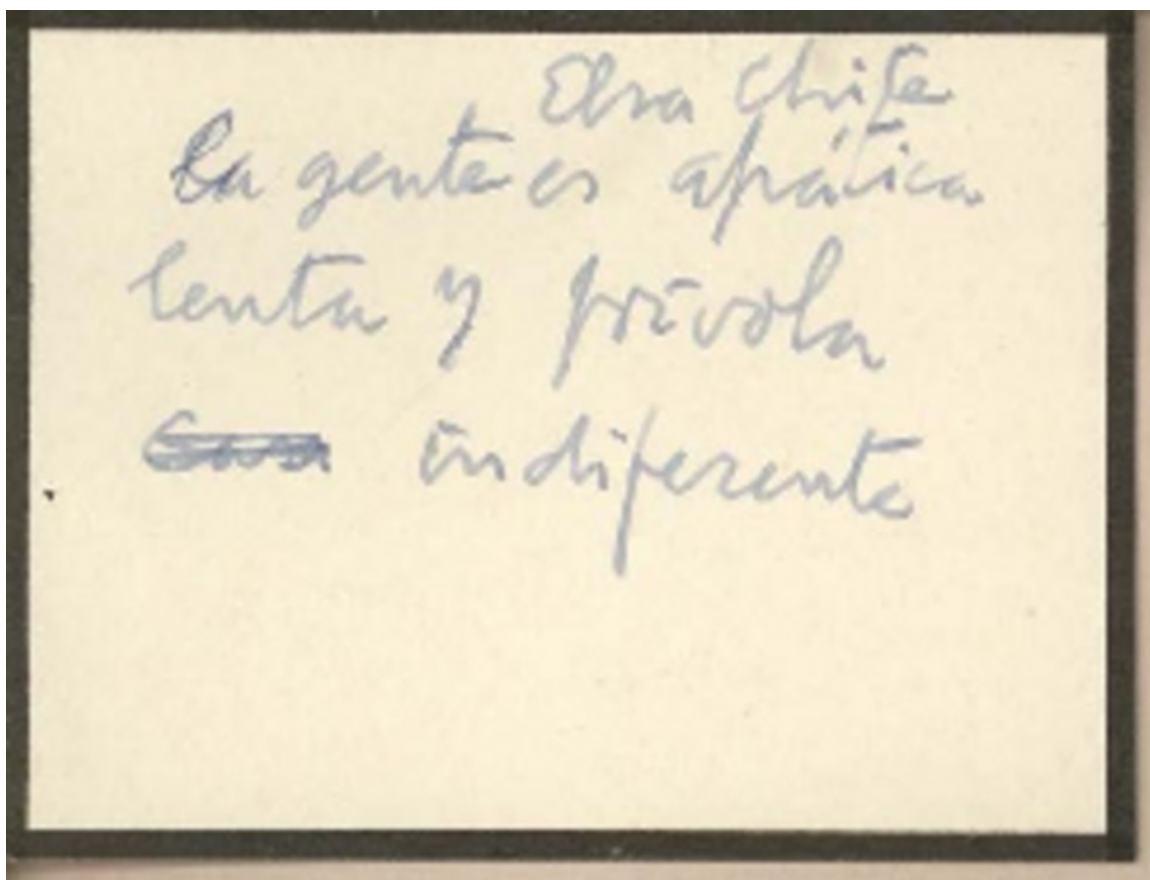 Elsa Chile
La gente es apática
lenta y frívola
indiferente